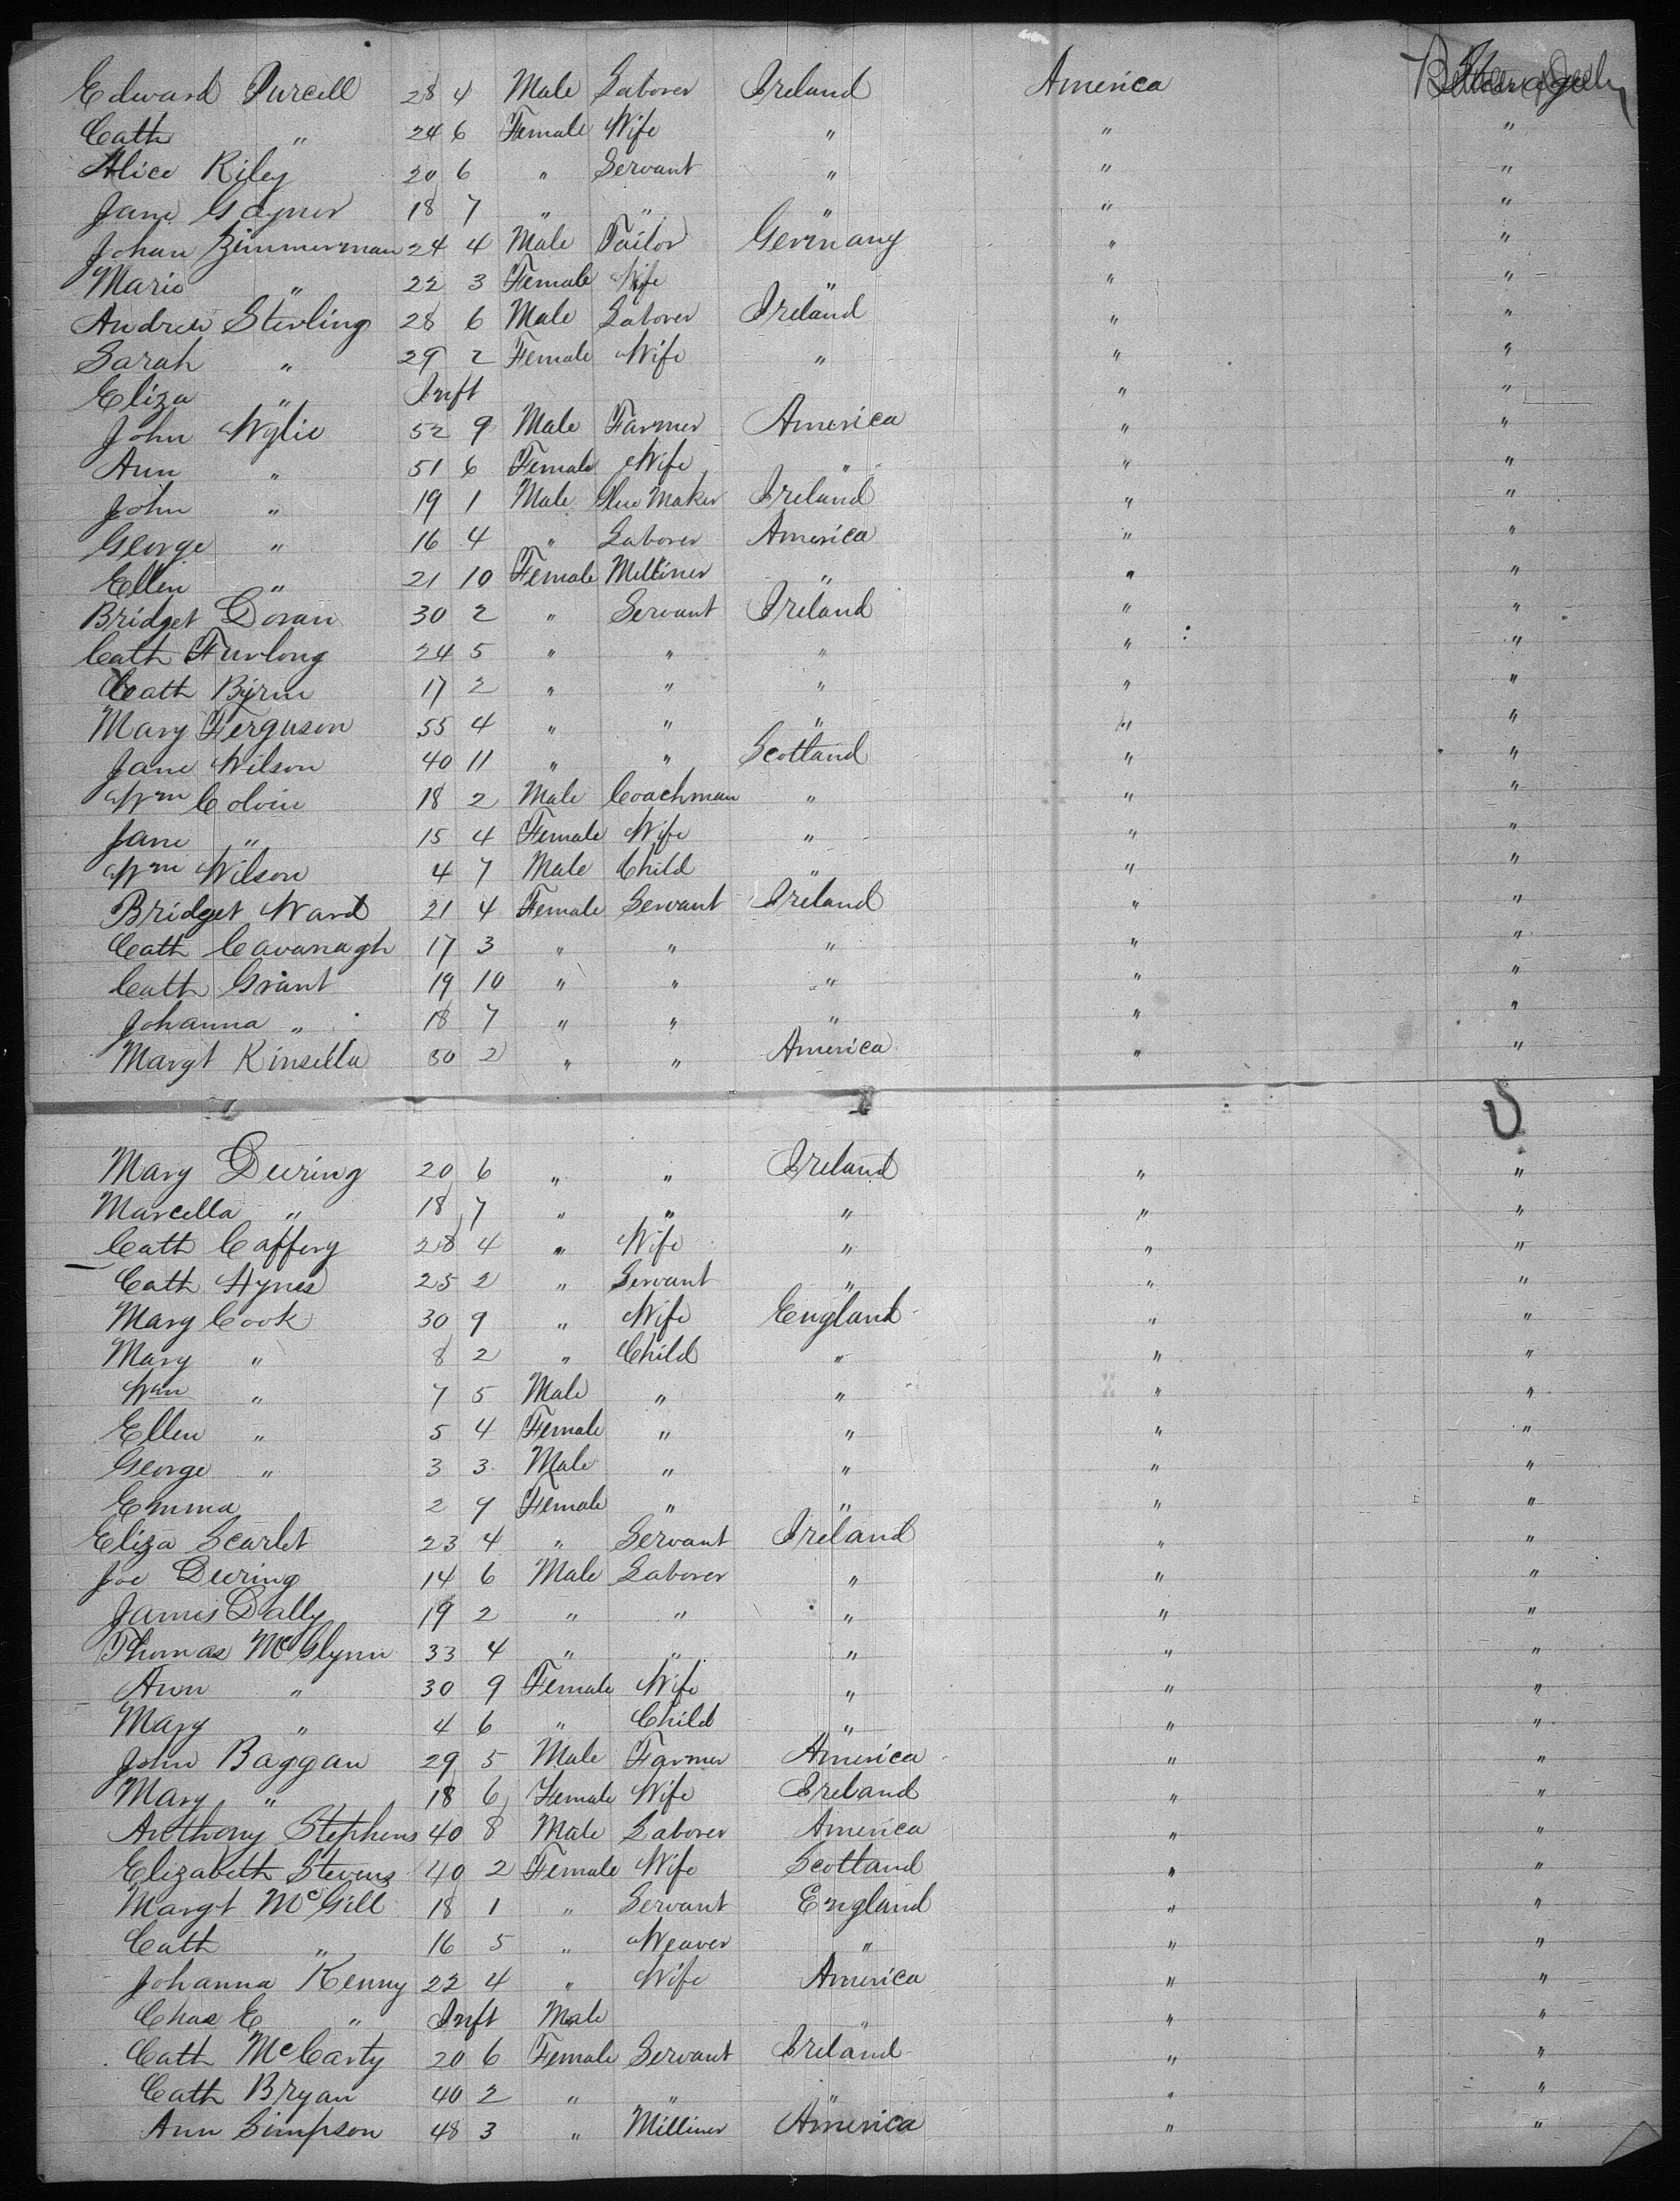 Edward Purcell 28 4 Male Laborer Ireland America
Cath " 24 6 Female Wife " " "
Alice Riley 20 6 " Servant " " "
Jane Gaynor 18 7 " " " " "
Johan Zimmerman 24 4 Male Tailor Germany " "
Marie " 22 3 Female Wife " " "
Andrew Sterling 28 6 Male Laborer Ireland " "
Sarah " 29 2 Female Wife " " "
Eliza " Inft " "
John Wylie 52 9 Male Farmer America " "
Ann " 51 6 Female Wife " " "
John " 19 1 Male Shoe Maker Ireland " "
George " 16 4 " Laborer America " "
Ellen " 21 10 Female Milliner " " "
Bridget Doran 30 2 " Servant Ireland " "
Cath Furlong 24 5 " " " " "
Cath Byrne 17 2 " " " " "
Mary Ferguson 55 4 " " " " "
Jane Wilson 40 11 " " Scotland " "
Wm Colvin 18 2 Male Coachman " " "
Jane " 15 4 Female Wife " " "
Wm Wilson 4 7 Male Child " " "
Bridget Ward 21 4 Female Servant Ireland " "
Cath Cavanagh 17 3 " " " " "
Cath Grant 19 10 " " " " "
Johanna " 18 7 " " " " "
Margt Kinsella 50 2 " " America " "
Mary Deering 20 6 " " Ireland " "
Marcella " 18 7 " " " " "
Cath Caffery 28 4 " Wife " " "
Cath Hynes 25 2 " Servant " " "
Mary Cook 30 9 " Wife England " "
Mary " 8 2 " Child " " "
Wm " 7 5 Male " " " "
Ellen " 5 4 Female " " " "
George " 3 3 Male " " " "
Emma 2 9 Female " " " "
Eliza Scarlet 23 4 " Servant Ireland " "
Joe Deering 14 6 Male Laborer " " "
James Dally 19 2 " " " " "
Thomas McGlynn 33 4 " " " " "
Ann " 30 9 Female Wife " " "
Mary " 4 6 " Child " " "
John Baggan 29 5 Male Farmer America " "
Mary " 18 6 Female Wife Ireland " "
Anthony Stephens 40 8 Male Laborer America " "
Elizabeth Stevens 40 2 Female Wife Scotland " "
Margt McGill 18 1 " Servant England " "
Cath " 16 5 " Weaver " " "
Johanna Kenny 22 4 " Wife America " "
Chas E " Inft Male " " "
Cath McCarty 20 6 Female Servant Ireland " "
Cath Bryan 40 2 " " " " "
Ann Simpson 48 3 " Milliner America " "